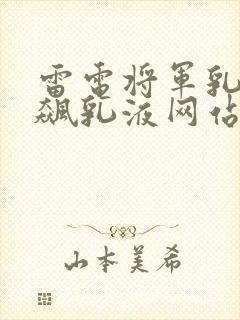 雷电将军乳
飙乳液网佔
山本美希